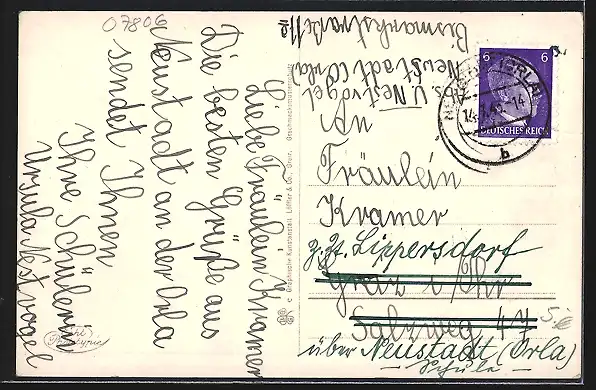 07806
Liebe Fräulein Kramer
Die besten Grüße aus
Neustadt an der Orla
sendet Ihnen
Ihre Schülerin
Ursula Nestvogel
Abs. U. Nestvogel
Neustadt (Orla)
Bismarkstraße 11a
6 6
DEUTSCHES REICH
NEUSTADT (ORLA)
-14
b
An
Fräulein
Kramer
z. Zt. Lippersdorf
Greiz i/Thür
Salzweg 47
über Neustadt (Orla)
Schule
5.-€
© Graphische Kunstanstalt Löffler & Co., Greiz. Geschmacksmusterschutz